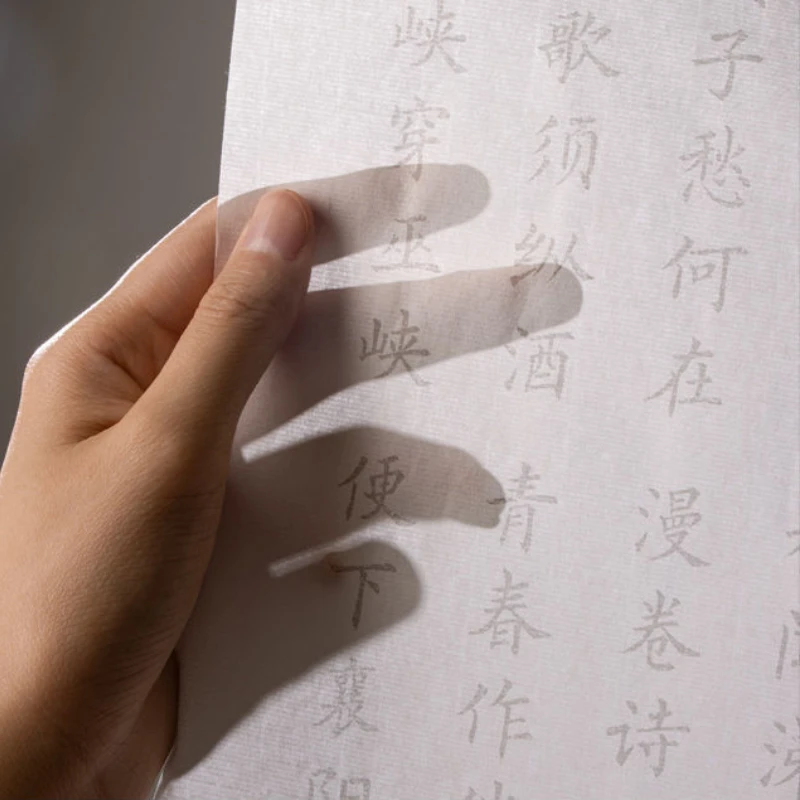 子愁何在 漫卷诗
歌须纵酒 青春作
峡穿巫峡 便下襄阳